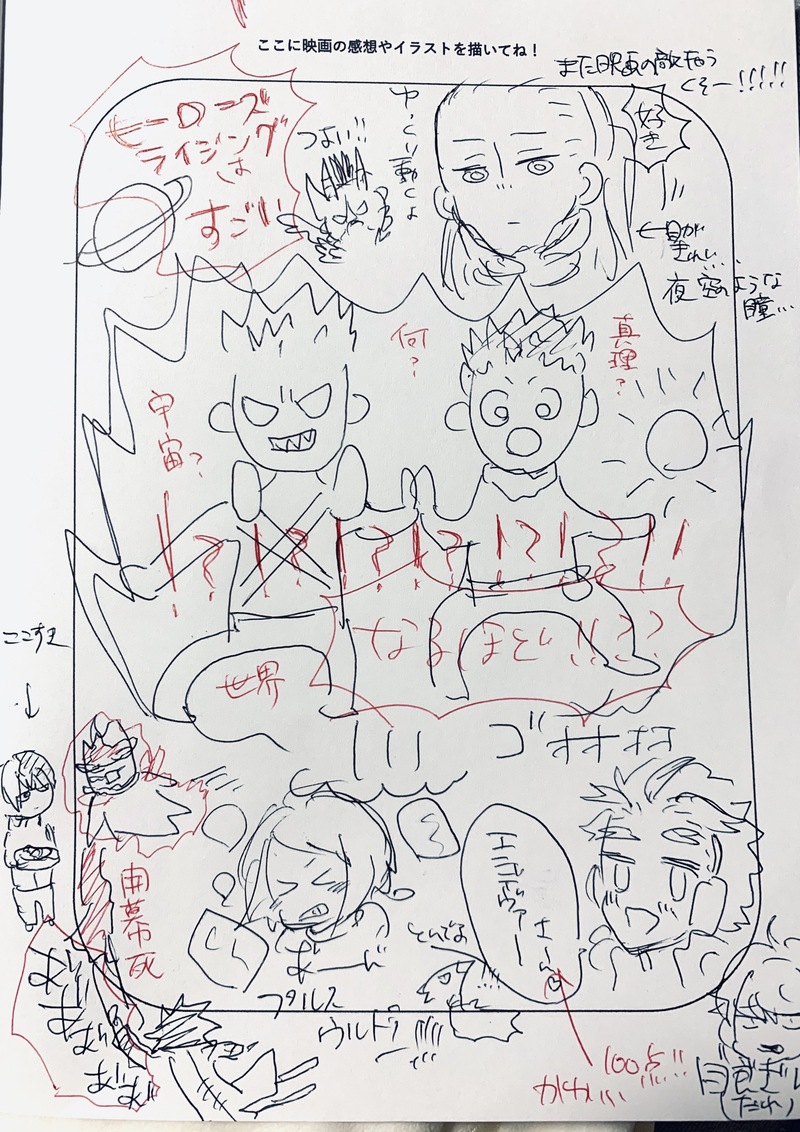 ここに映画の感想やイラストを描いてね！
また映画の敵もう
くそー!!!!!
好き
ヒーローズ
ライジング
は
すごい
つよい!!
ゆっくり動くよ
←瞳が
きれい…
夜空のような
瞳…
何？
真理？
宇宙？
!?!?!?!?!?!?!!
なるほど!!??
世界
ここすき
↓
ゴオオオオ
開幕死
エンデヴァーさーん
プルス
ウルトラ
とんでる
100点!!
かわいい
(だれ)